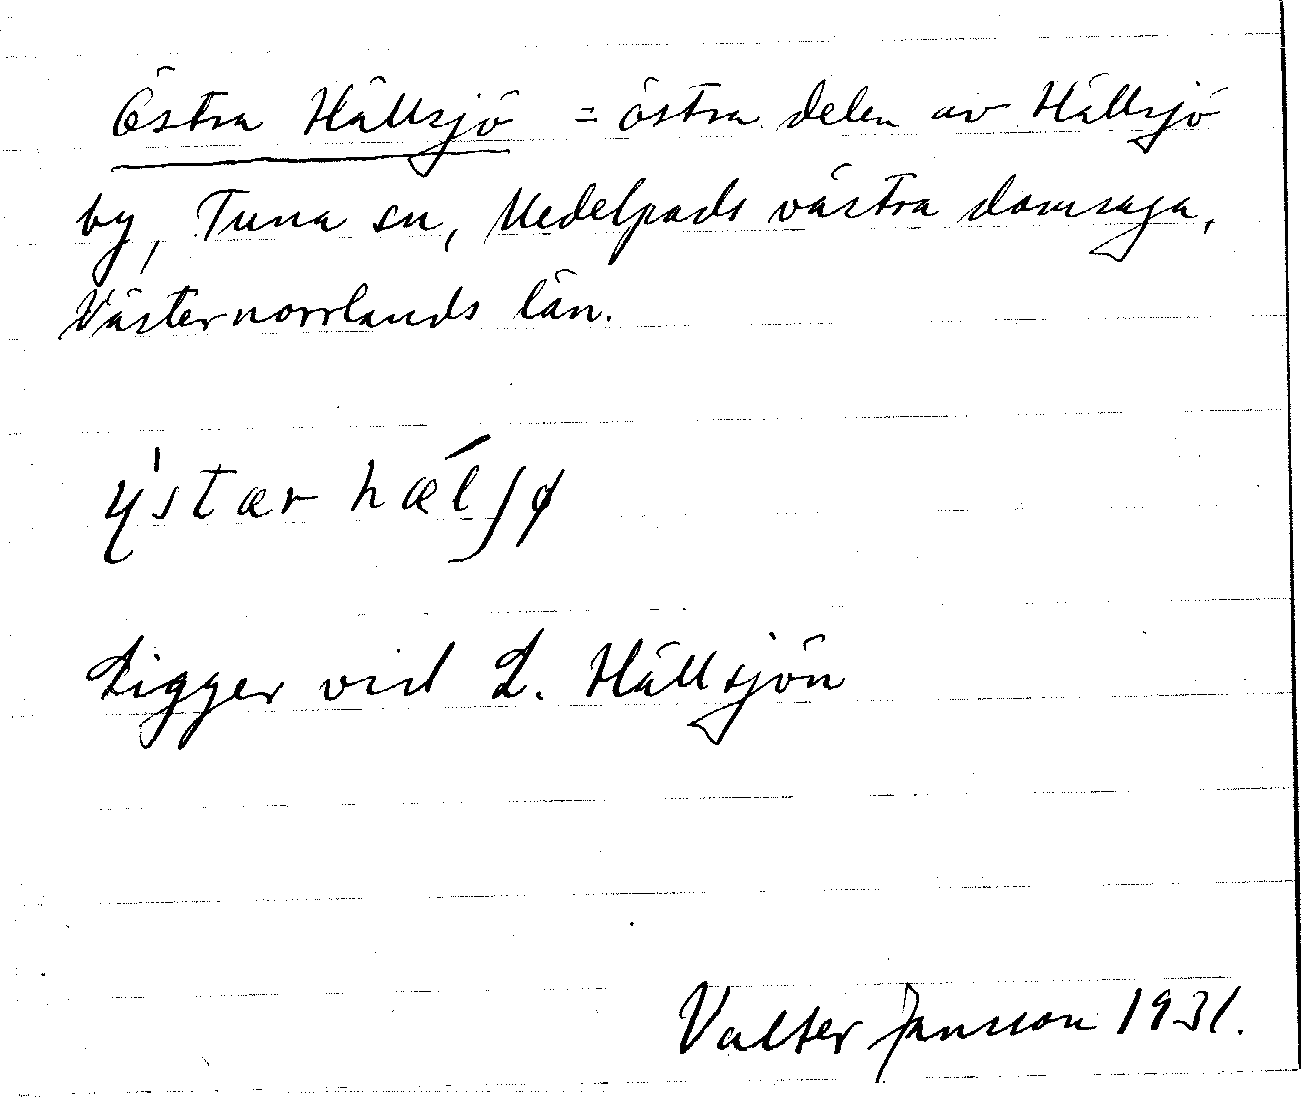 Östra Hällsjö = östra delen av Hällsjö
by, Tuna sn, Medelpads västra domsaga,
Västernorrlands län.
ýstær hǽlʃø
Ligger vid L. Hällsjön
Valter Jansson 1931.